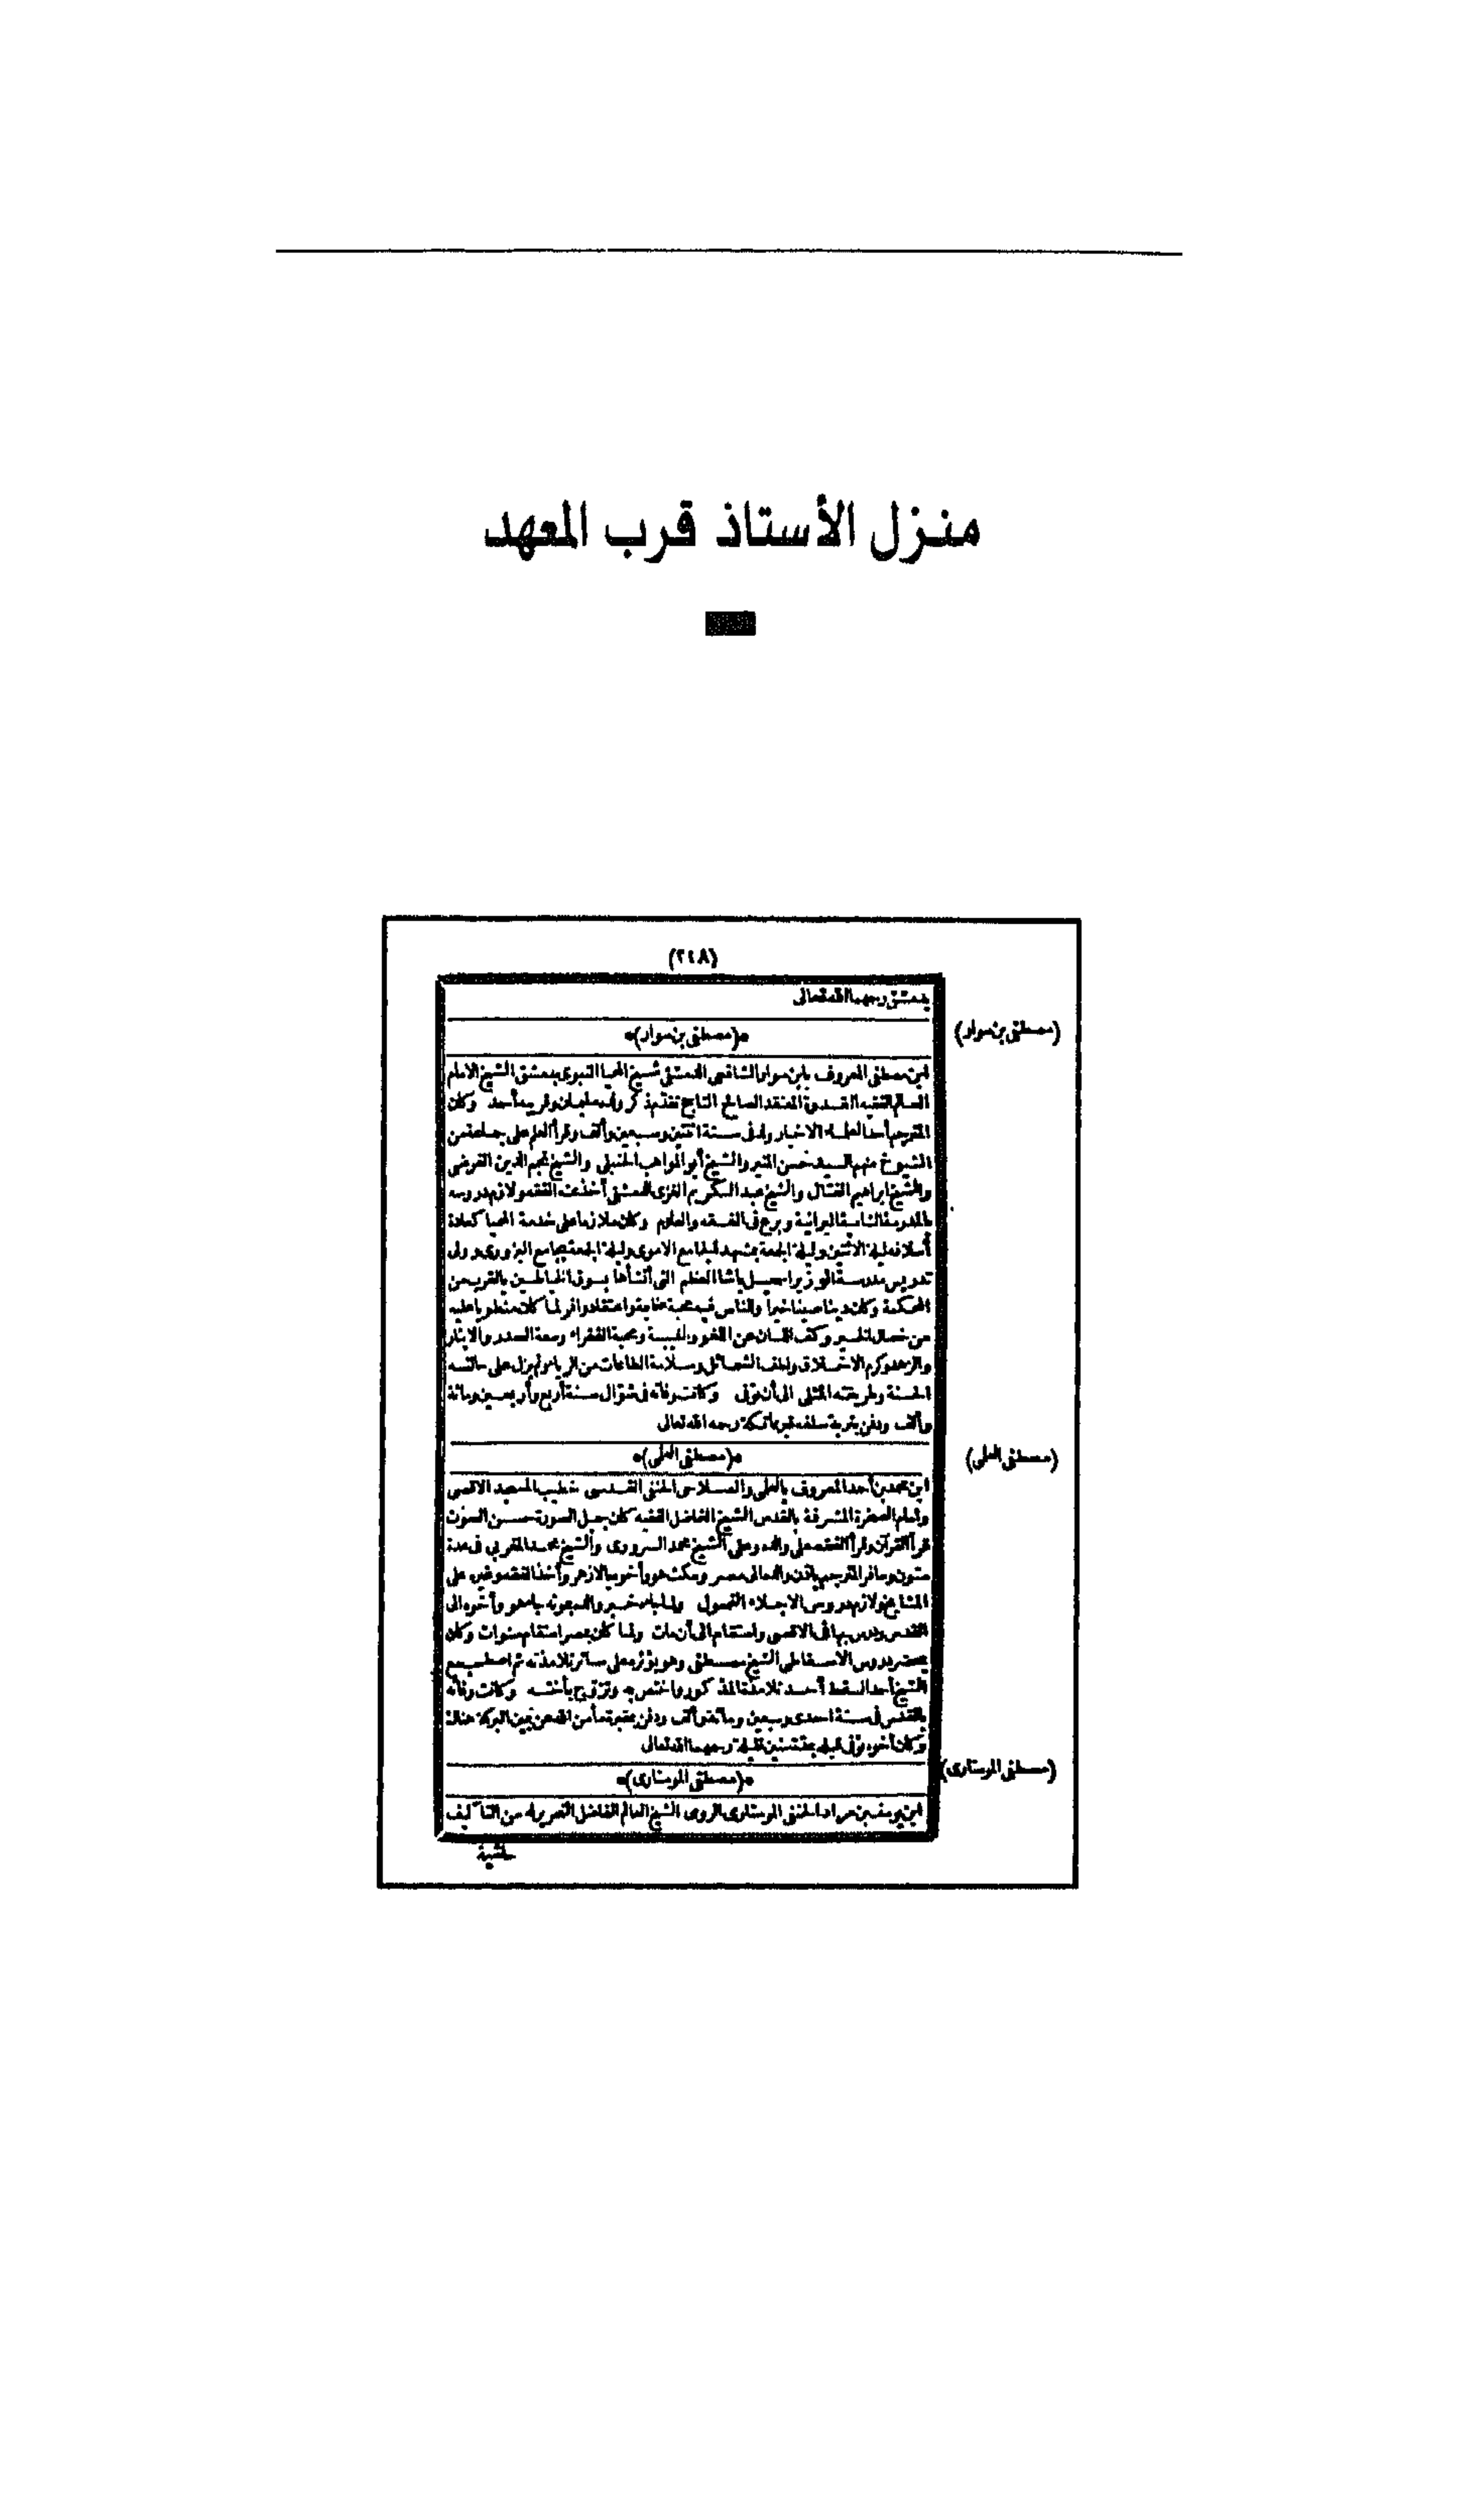 منزل الأستاذ قرب المعهد
(٢٤٨)
بدمشق رحمهما الله تعالى
(مصطفى بن سوار)
*(مصطفى بن سوار)*
ابن مصطفى المعروف بابن سوار الشافعي الدمشقى شيخ المحيا النبوى بدمشق الشيخ الامام
العالم الفقيه القدوة المعتقد الصالح تقدم ذكر ولديه سليمان وقريبه أحمد وكان
المترجم أحد العلماء الاخيار ولد فى سنة اثنتين وسبعين وألف وقرأ العلم على جماعة من
الشيوخ منهم السيد حسن المنير والشيخ أبو المواهب الحنبلى والشيخ نجم الدين الفرضى
والشيخ ابراهيم الفتال والشيخ عبد الكريم الغزى الدمشقى أخذ عنه الفقه ولازم دروسه
بالمدرسة الشامية البرانية وبرع فى الفقه والعلوم وكان ملازما على خدمة المحيا كعادة
أسلافه ليلة الاثنين وليلة الجمعة بمشهد الجامع الاموى وليلة الجمعة بجامع البزورى وولى
تدريس مدرسة الوزير اسمعيل باشا العظم التى أنشأها بسوق الخياطين بالقرب من
المحكمة وكان دينا صينا خيرا والناس فيه محبة واعتقاد وافر لما كان منطويا عليه
من خصال الخير وكف اللسان عن اللغو والغيبة ومحبة الفقراء وسعة الصدر والايثار
والزهد وكرم الاخلاق ولطف الشمائل وسلامة الطاعات من الرياء ولم يزل على حالته
الحسنة وطريقته المثلى الى أن توفى وكانت وفاته فى شوال سنة أربع وأربعين ومائة
وألف ودفن بتربة سلفه رحمه الله تعالى
(مصطفى العلمى)
*(مصطفى العلمى)*
ابن محمد بن أحمد المعروف بالعلمى والصلاحى الحنفى القدسى خطيب المسجد الاقصى
وامام الصخرة المشرفة بالقدس الشيخ الفاضل الفقيه كان جميل الصورة حسن الصوت
قرأ القرآن وقرأ الفقه على والده وعلى الشيخ محمد السرورى والشيخ محمد المغربى فى عدة
متون وسافر المترجم باذن والده الى مصر ومكث هو وأخوه بالازهر وأخذ الفقه وغيره على
المشايخ ولازم دروس الاجلاء الفحول ولما جاء خبر والده جاء هو وأخوه الى
القدس ودرس بها فى الاقصى واستقام الى أن مات ولما كان بمصر استقام سنوات وكان
يحضر دروس الاسقاطى الشيخ مصطفى وهو يؤثره على سائر تلامذته ثم اصطحب مع
الشيخ أحمد السقط أحد تلامذة المذكور واختص به وتزوج بأخته وكانت وفاته
بالقدس فى سنة احدى وسبعين ومائة وألف ودفن بمقبرة مأمن الله عن يمين البركة هناك
وكان أخوه توفى قبله بمدة سنين قليلة رحمهما الله تعالى
(مصطفى الموستارى)
*(مصطفى الموستارى)*
ابن يوسف بن مراد الحنفى الموستارى الرومى الشيخ العالم الفاضل النحرير له من التآليف
حاشية